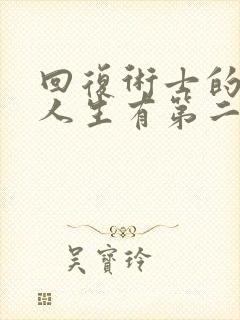 回復術士的
人生有第二
吴寶玲